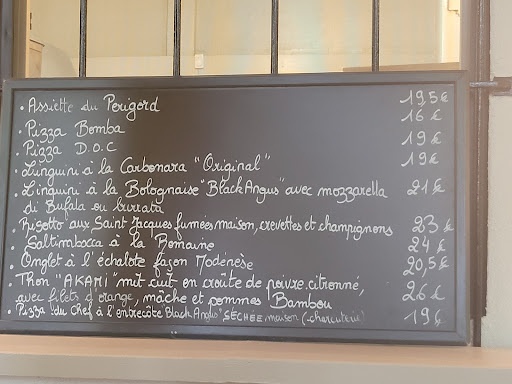 • Assiette du Perigord 19,5 €
• Pizza Bomba 16 €
• Pizza D.O.C 19 €
• Linguini à la Carbonara "Original" 19 €
• Linguini à la Bolognaise "Black Angus" avec mozzarella 21 €
di Bufala ou burrata
• Risotto aux Saint Jacques fumées maison, crevettes et champignons 23 €
• Saltimbocca à la Romaine 24 €
• Onglet à l'échalote façon Modénèse 20,5 €
• Thon "AKAMI" mit cuit en croûte de poivre citronné,
avec filets d'orange, mâche et pommes Bambou 26 €
• Pizza du Chef à l'entrecôte Black Angus "SÉCHÉE maison (charcuterie) 19 €